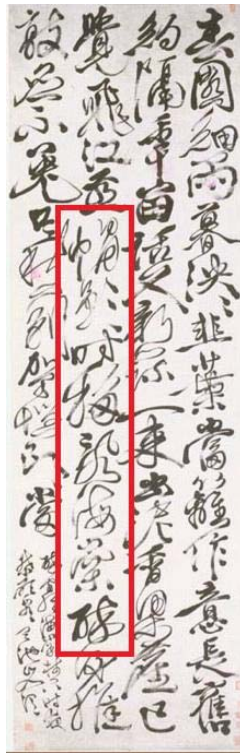 春園細雨暮泱泱韭葉當籬作意長舊
約隔年留話久新蔬一束出泥香梁塵已
覺飛江燕帽影時移亂海棠醉後推
敲應不免只愁別駕惱郎當